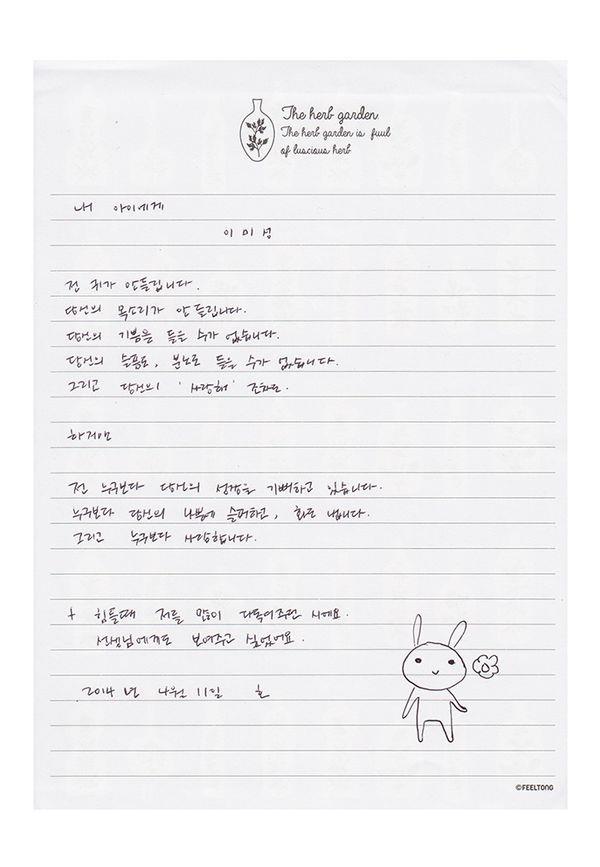 The herb garden
The herb garden is fuul
of luscious herb
내 아이에게
이 미 성
전 귀가 안들립니다.
당신의 목소리가 안 들립니다.
당신의 기쁨을 들을 수가 없습니다.
당신의 슬픔도, 분노도 들을 수가 없습니다.
그리고 당신의 '사랑해' 조차도.
하지만
전 누구보다 당신의 성장을 기뻐하고 있습니다.
누구보다 당신의 나쁨에 슬퍼하고, 화도 냅니다.
그리고 누구보다 사랑합니다.
+ 힘들때 저를 많이 다독여주던 시예요.
선생님에게도 보여주고 싶었어요.
2014 년 4월 11일
©FEELTONG